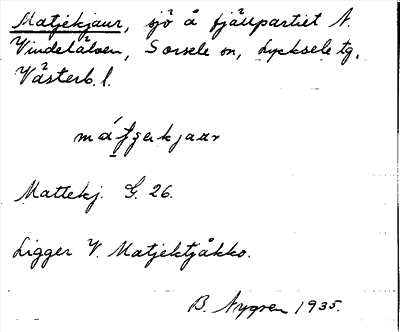 Matjekjaur, sjö å fjällpartiet N.
Vindelälven, Sorsele sn, Lycksele tg,
Västerb. l.
Mattekj. G. 26.
Ligger V. Matjektjåkko.
B. Nygren 1935.